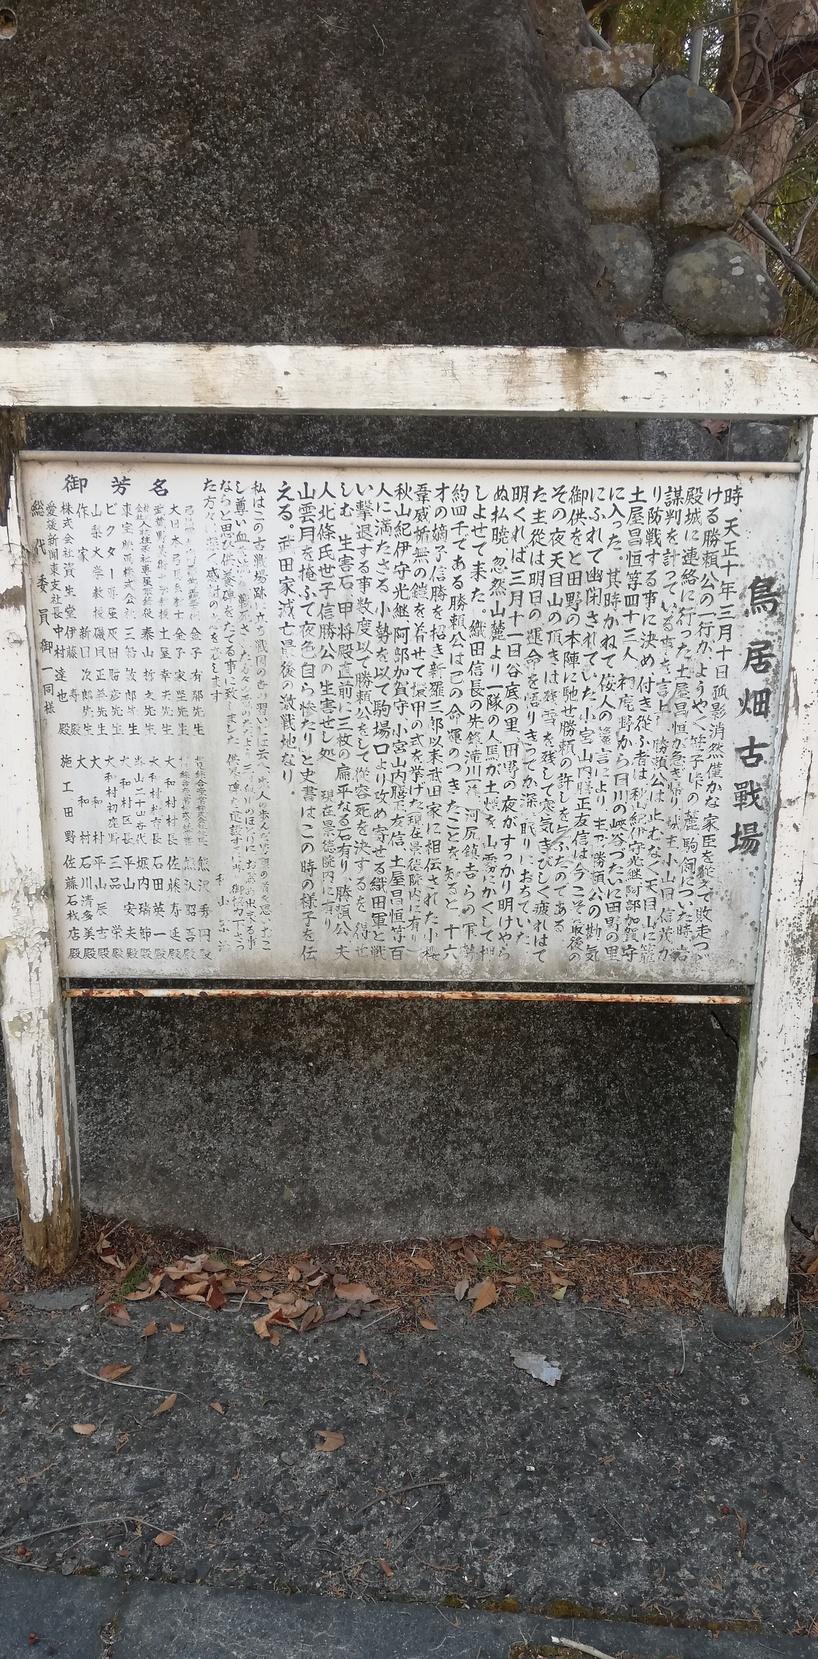 鳥居畑古戰場
時 天正十年三月十日孤影消然僅かな家臣を従えて敗走つづ
ける勝頼公の一行がようやく笹子峠の麓駒飼についた時岩
殿城に連絡に行った土屋昌恒が急ぎ帰り城主小山田信茂が
謀判を計っている事を言上 勝頼公は止むなく天目山に籠
り防戦する事に決め付き従ふ者は秋山紀伊守光継阿部加賀守
土屋昌恒等四十三人 初鹿野から日川の峡谷づたい田野の里
に入った。其時かねて佞人の讒言により主君勝頼公の勘気
にふれて幽閉されていた小宮山内膳正友信は今こそ最後の
御供をと田野の本陣に馳せ勝頼の許しを乞ふたのである
その夜天目山の頂きは残雪を残して寒気きびしく疲れはて
た主従は明日の運命を悟りきってか深い眠りにおちていた
明くれば三月十一日谷底の里 田野の夜がすっかり明けやら
ぬ払暁 忽然山麓より一隊の人馬が土煙を 山雲ふかくして押
しよせて来た。織田信長の先鋒滝川一益 河尻鎮吉らの軍勢
約四千である勝頼公は己の命運のつきたことを知ると 十六
才の嫡子信勝を招き新羅三郎以来武田家に相伝された小桜
韋威楯無の鎧を着せて擐甲の式を挙げた現在景徳院内に有り
秋山紀伊守光継 阿部加賀守 小宮山内膳正友信 土屋昌恒等百
人に満たざる小勢を以て駒場口より攻め寄せる織田軍と戦
い撃退する事数度以て勝頼公をして従容死を決するを得せ
しむ 生害石 甲将殿直前に三枚の扁平なる石有り 勝頼公 夫
人北條氏世子信勝公の生害せし処 現在景徳院内に有り
山雲月を掩ふて夜色自ら惨たりと史書はこの時の様子を伝
える。武田家滅亡最後の激戦地なり。
私はこの古戦場跡に立ち戦国の
し尊い血を
ならと田野に供養碑をたてる事に致しました
た方々に深く感謝の
御芳名
金子有鄰先生
金子家堅先生
土屋幸夫先生
泰山哲文先生
三船敏郎先生
ビクター専属 灰田勝彦先生
山梨大学教授 磯貝正義先生
作家 新田次郎先生
株式会社資生堂 伊藤 寿殿
愛媛新聞東支社長 中村達也殿
総代委員御一同様
熊沢秀円殿
熊沢昭吾殿
大和村村長 佐藤寿延殿
石田英一殿
堀内瑞師殿
大和村区長 平山安夫殿
大和村初鹿野 三品 学殿
大和村 平山辰吉殿
大和村 石川清多美殿
施工田野 佐藤石材店殿